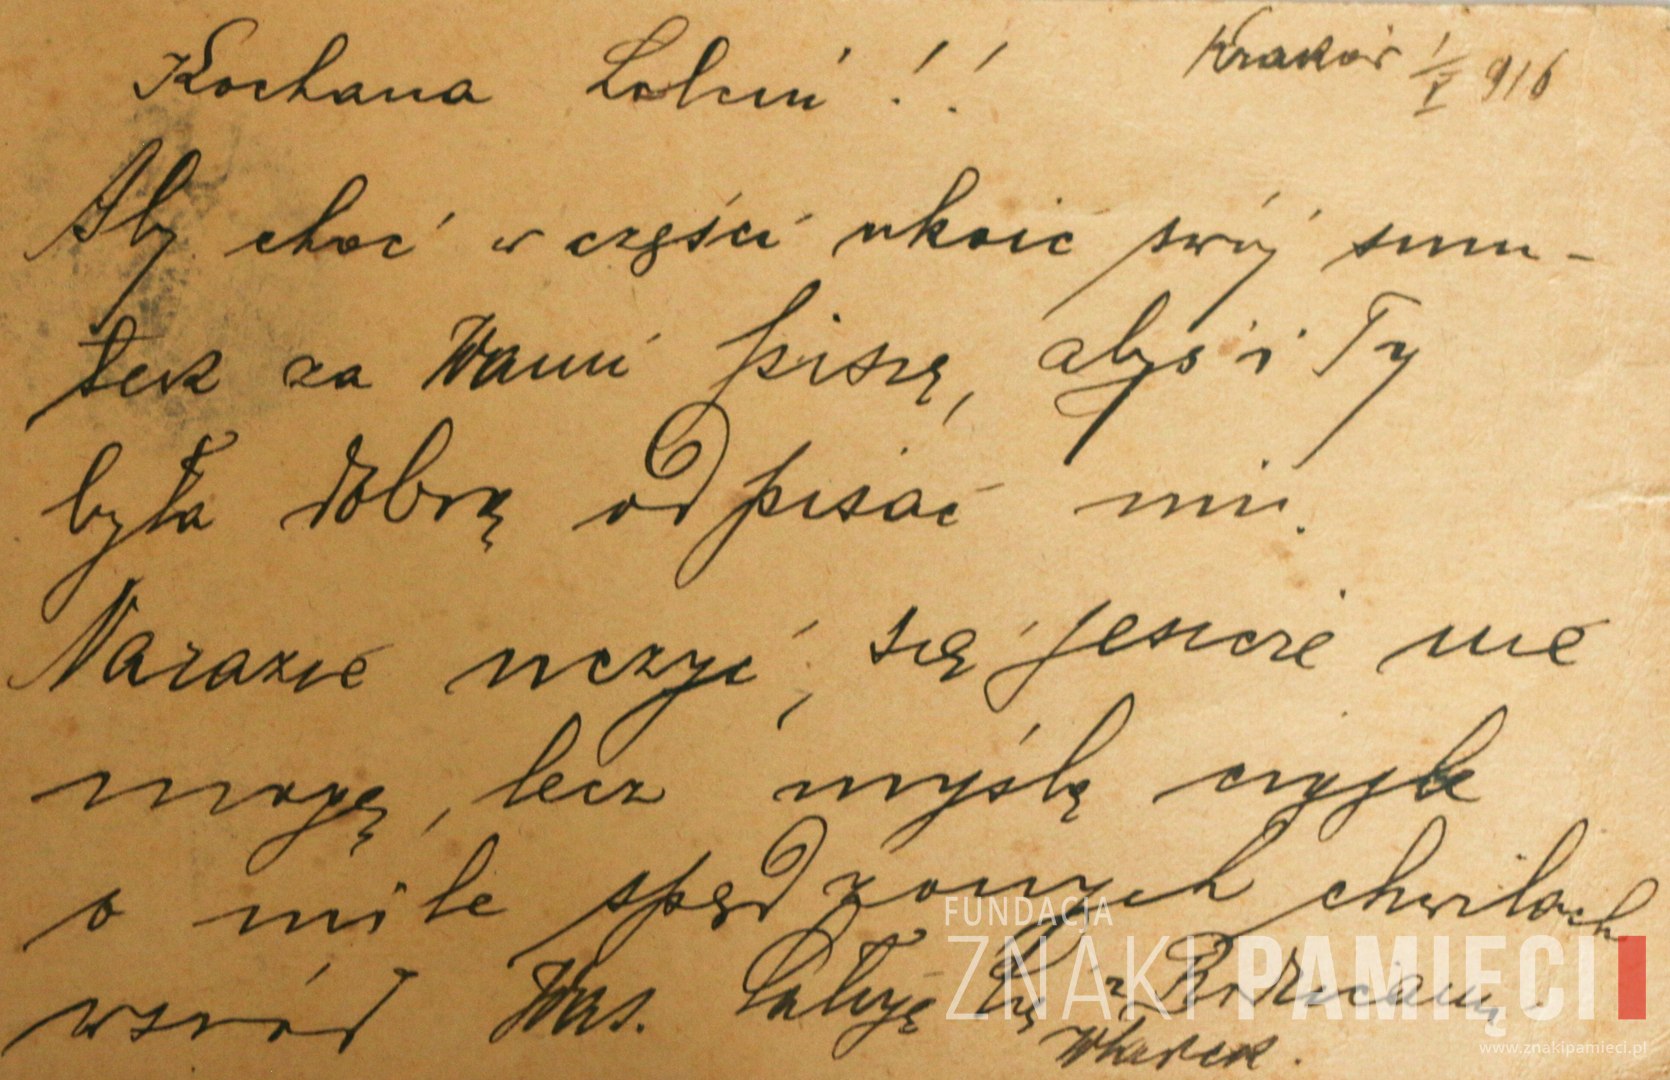 Kraków 1/V 916
Kochana Lolciu!!
Aby choć w części ukoić swój smu-
tek za Wami piszę, abyś i Ty
była dobrą odpisać mi.
Narazie uczyć, się jeszcze nie
mogę, lecz myślę ciągle
o mile spędzonych chwilach
wśród Was. Całuję Cię z Rodzicami.
FUNDACJA
ZNAKI PAMIĘCI
www.znakipamieci.pl